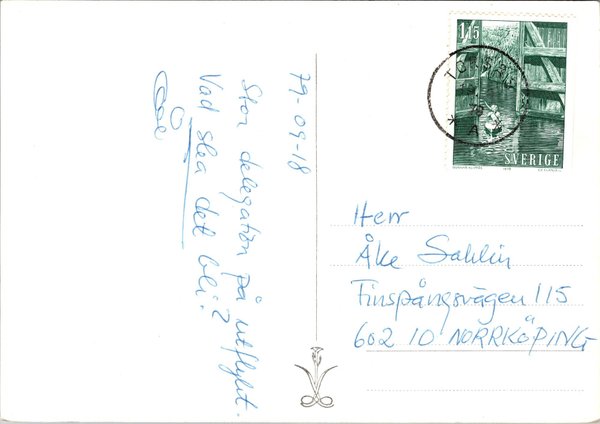 79-09-18
Stor delegation på utflykt.
Vad skea det bli?
1.15
SVERIGE
1979
Herr
Åke Sahlin
Finspångsvägen 115
602 10 NORRKÖPING